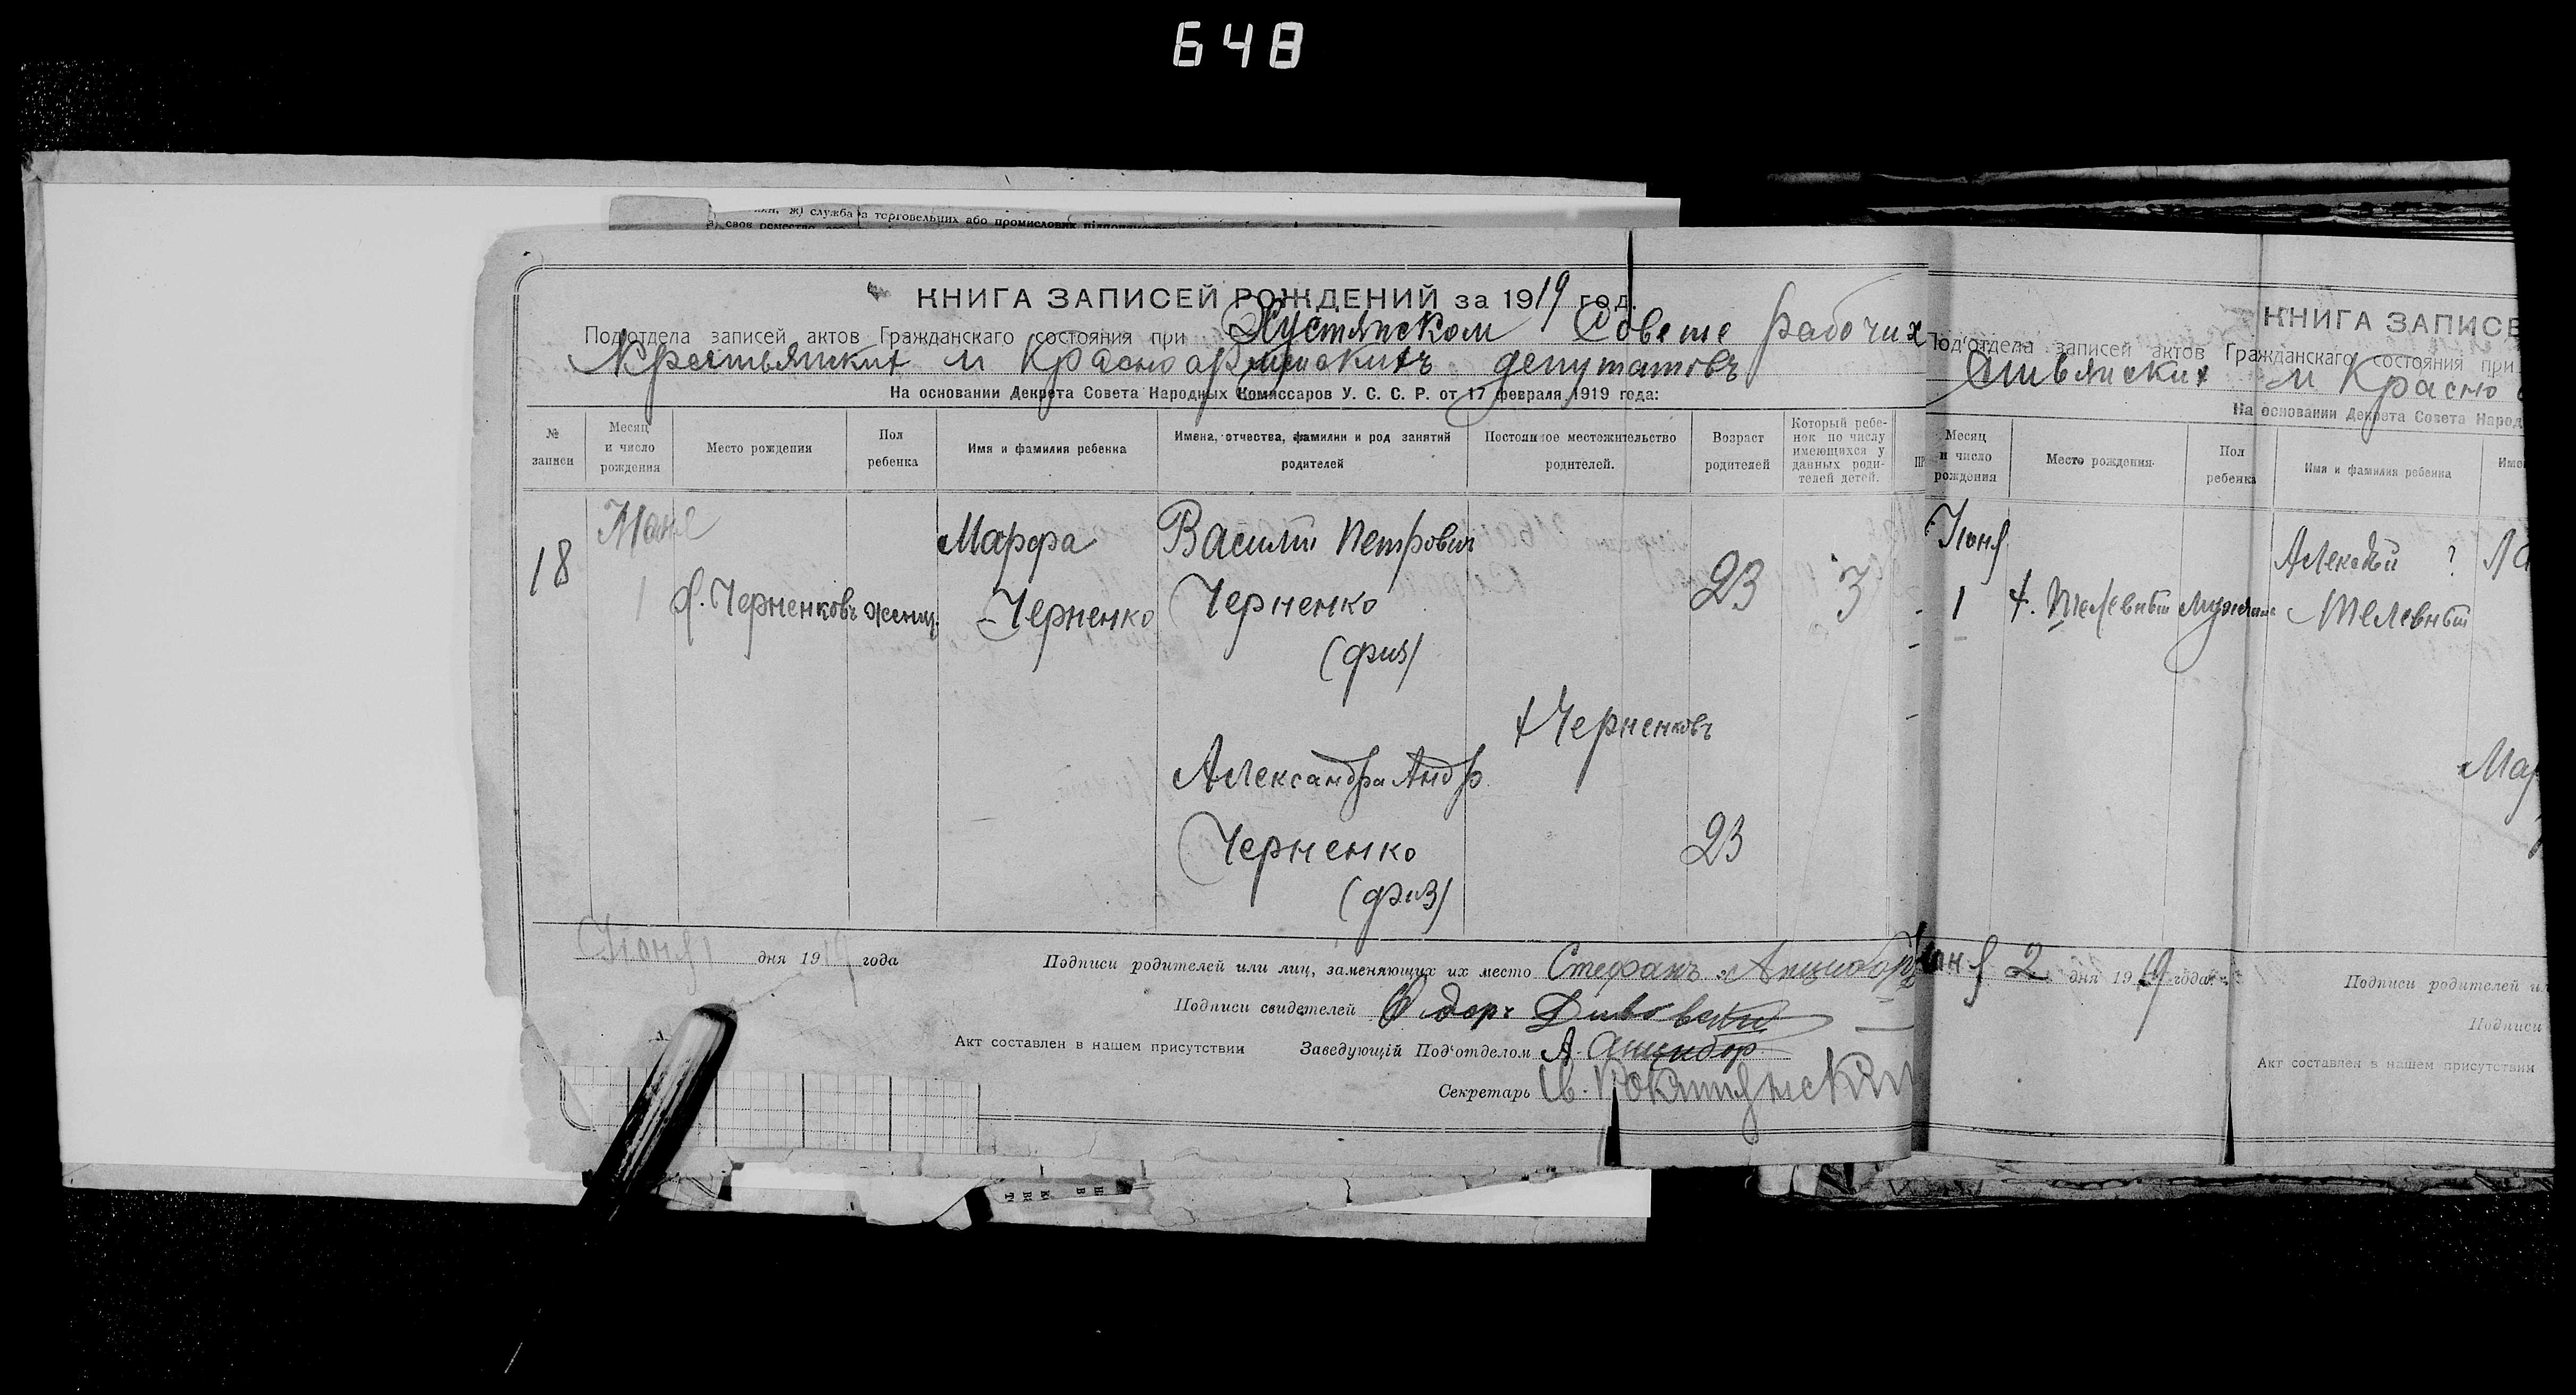 648
ж) служба в торговельних або промислових
КНИГА ЗАПИСЕЙ РОЖДЕНИЙ за 1919 год.
Под'отдела записей актов Гражданскаго состояния при Хустянском Совете рабочих
Крестьянских и Красноармейскихъ депутатовъ
На основании Декрета Совета Народных Комиссаров У. С. С. Р. от 17 февраля 1919 года:
№ записи
Месяц и число рождения
Место рождения
Пол ребенка
Имя и фамилия ребенка
Имена, отчества, фамилии и род занятий родителей
Постоянное местожительство родителей.
Возраст родителей
Который ребенок по числу имеющихся у данных родителей детей.
18
1
х. Черненковъ
женщ.
Марфа
Черненко
Василий Петрович
Черненко
(физ)
23
3
х Черненковъ
Александра Андр.
Черненко
(физ)
23
Июня 1 дня 1919 года
Подписи родителей или лиц, заменяющих их место Стефанъ Анцибор
Подписи свидетелей
Акт составлен в нашем присутствии Заведующій Под'отделом А. Анцибор
Секретарь
КНИГА ЗАПИСЕ
Под'отдела записей актов Гражданскаго состояния при
и Красно
На основании Декрета Совета Народ
Месяц и число рождения
Место рождения
Пол ребенка
Имя и фамилия ребенка
Име
Июня
1
Алексей ?
Мар
2 дня 1919 года
Подписи родителей ил
Подписи
Акт составлен в нашем присутствии